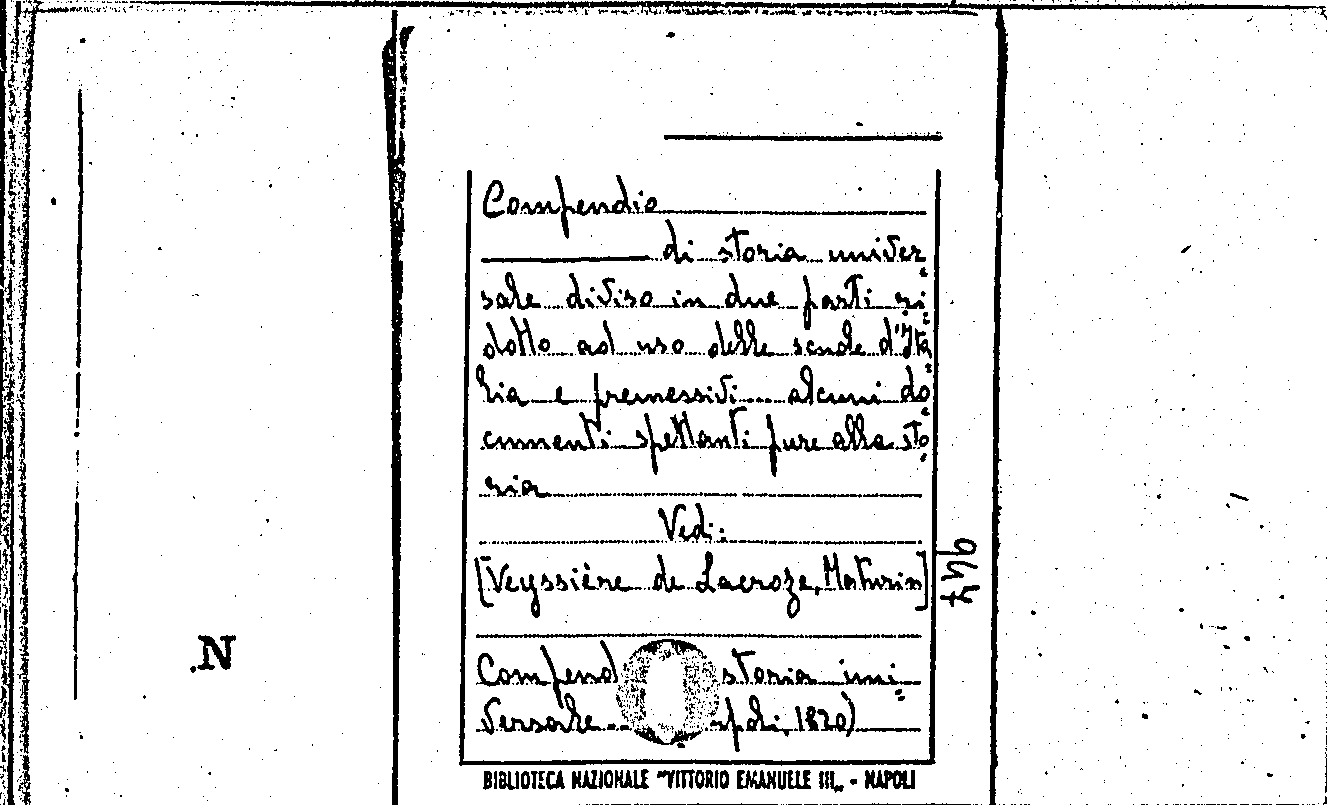 Compendio
di storia univer=
sale diviso in due parti ri=
dotto ad uso delle scuole d'Ita=
lia e premessivi... alcuni do=
cumenti spettanti pure alla sto=
ria
Vedi:
[Veyssière de Lacroze, Maturin]
947
Compend storia uni=
versale... apoli, 1820)
N.
BIBLIOTECA NAZIONALE "VITTORIO EMANUELE III„ - NAPOLI